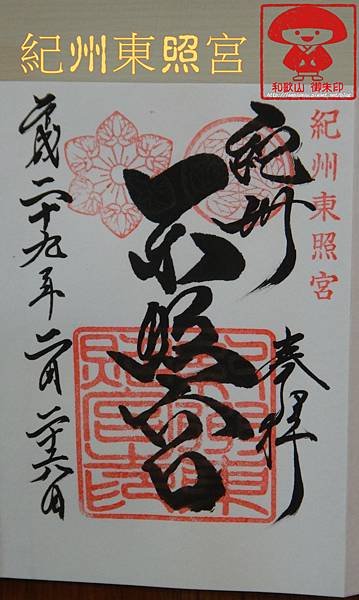 紀州東照宮
和歌山 御朱印
紀州東照宮
紀州
奉拝
東照宮
平成二十九年二月二十六日